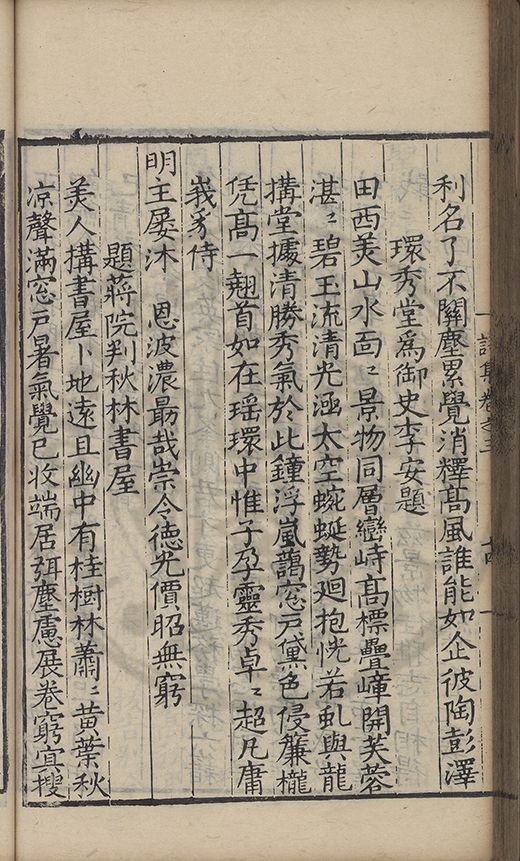 利名了不關塵累覺消釋高風誰能如企彼陶彭澤
環秀堂爲御史李安題
田西美山水面〻景物同層巒峙高標疊嶂開芙蓉
湛〻碧玉流清光涵太空蜿蜒勢廻抱恍若虬與龍
搆堂據清勝秀氣於此鐘浮嵐藹窓戸黛色侵簾櫳
凭高一翹首如在瑶環中惟子孕靈秀卓〻超凡庸
峩豸侍
明主屡沐 恩波濃勗哉崇令德光價昭無窮
題蔣院判秋林書屋
美人搆書屋卜地遠且幽中有桂樹林蕭〻黄葉秋
凉聲滿窓戸暑氣覺已收端居弭塵慮展卷窮冝搜
詩集卷之三
十四